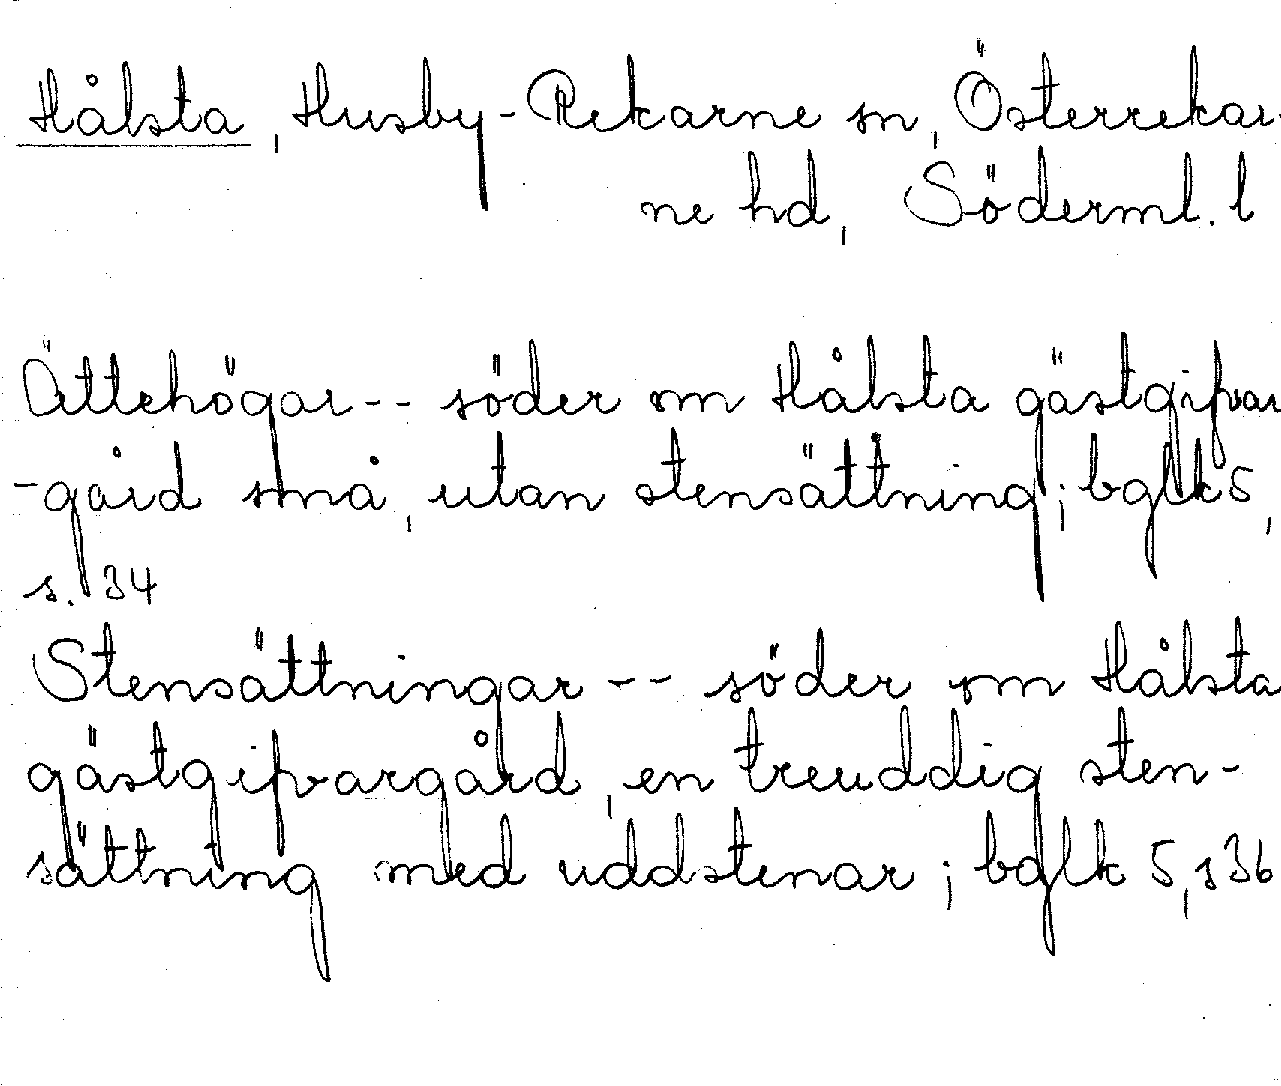 Hålsta, Husby-Rekarne sn, Österrekar-
ne hd, Söderml. l
Ättehögar -- söder om Hålsta gästgifvar
-gård små, utan stensättning; bglk 5,
s. 34
Stensättningar -- söder om Hålsta
gästgifvargård, en treuddig sten-
sättning med uddstenar; bglk 5, s 36